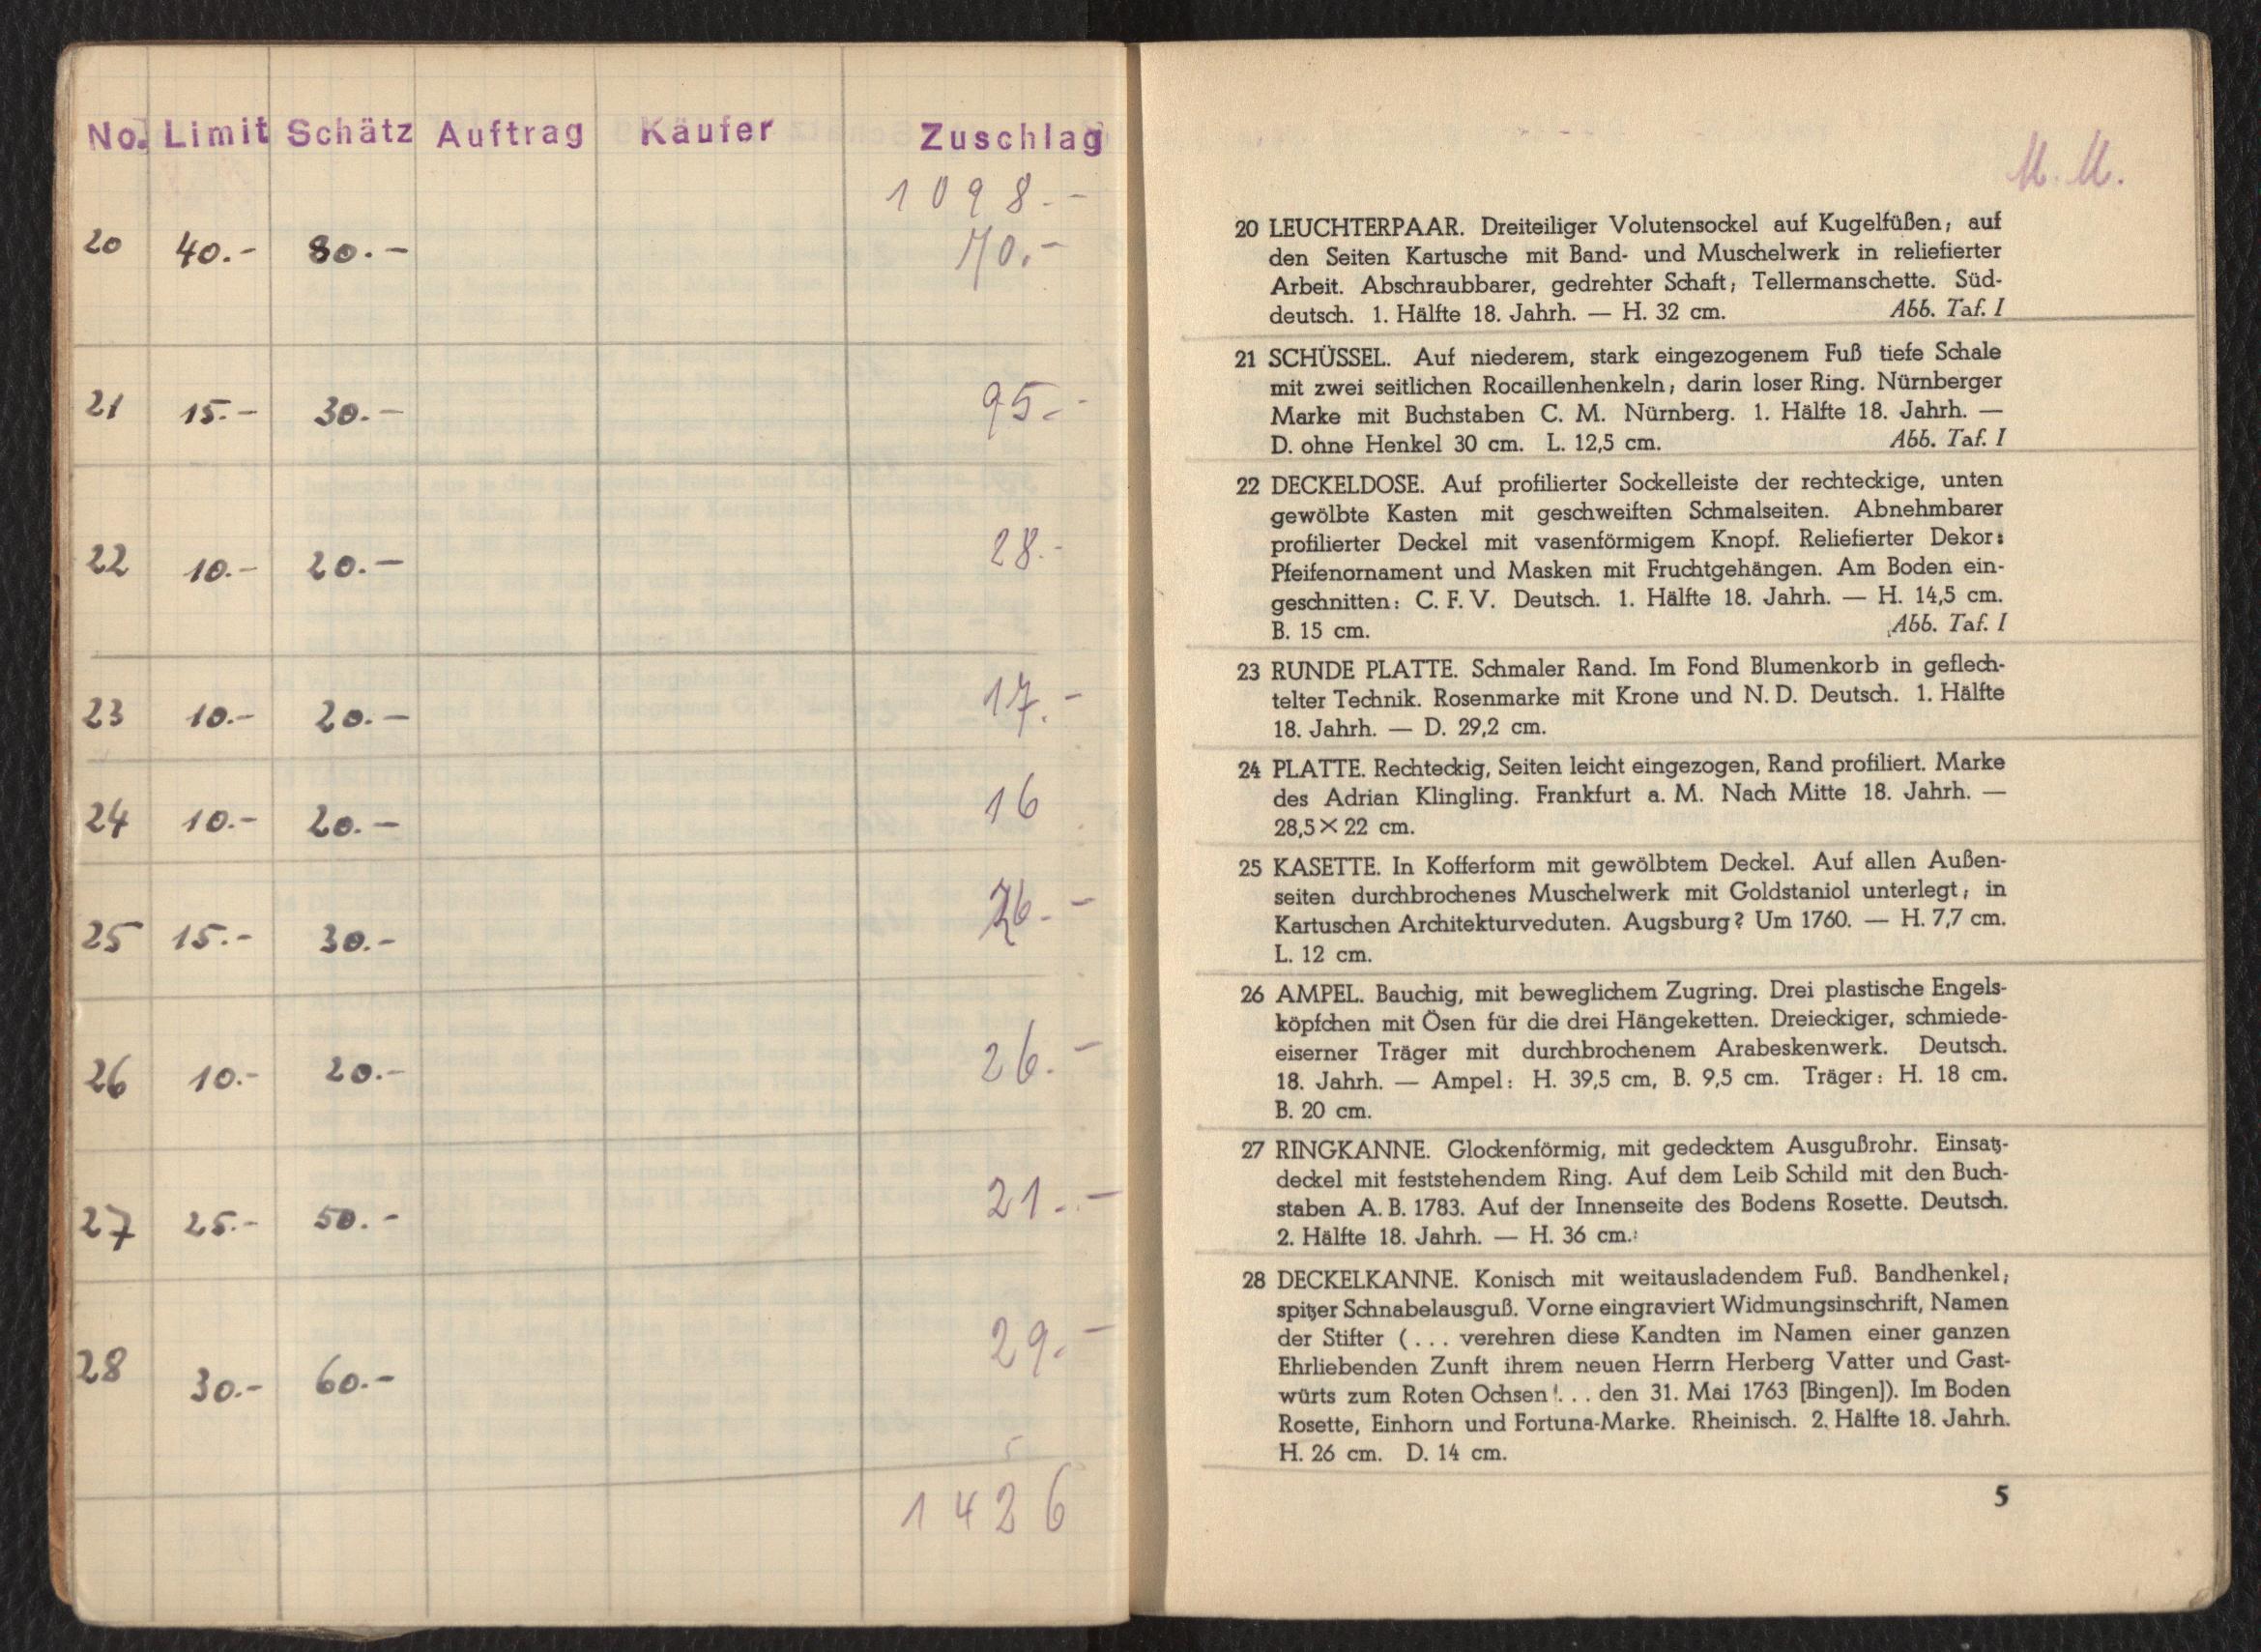 No. Limit Schätz Auftrag Käufer Zuschlag
1098.-
20 40.- 80.- 70.-
21 15.- 30.- 95.-
22 10.- 20.- 28.-
23 10.- 20.- 17.-
24 10.- 20.- 16
25 15.- 30.- 26.-
26 10.- 20.- 26.-
27 25.- 50.- 21.-
28 30.- 60.- 29.-
1426
M. M.
20 LEUCHTERPAAR. Dreiteiliger Volutensockel auf Kugelfüßen; auf
den Seiten Kartusche mit Band- und Muschelwerk in reliefierter
Arbeit. Abschraubbarer, gedrehter Schaft; Tellermanschette. Süd-
deutsch. 1. Hälfte 18. Jahrh. — H. 32 cm. Abb. Taf. I
21 SCHÜSSEL. Auf niederem, stark eingezogenem Fuß tiefe Schale
mit zwei seitlichen Rocaillenhenkeln; darin loser Ring. Nürnberger
Marke mit Buchstaben C. M. Nürnberg. 1. Hälfte 18. Jahrh. —
D. ohne Henkel 30 cm. L. 12,5 cm. Abb. Taf. I
22 DECKELDOSE. Auf profilierter Sockelleiste der rechteckige, unten
gewölbte Kasten mit geschweiften Schmalseiten. Abnehmbarer
profilierter Deckel mit vasenförmigem Knopf. Reliefierter Dekor:
Pfeifenornament und Masken mit Fruchtgehängen. Am Boden ein-
geschnitten: C. F. V. Deutsch. 1. Hälfte 18. Jahrh. — H. 14,5 cm.
B. 15 cm. Abb. Taf. I
23 RUNDE PLATTE. Schmaler Rand. Im Fond Blumenkorb in geflech-
telter Technik. Rosenmarke mit Krone und N. D. Deutsch. 1. Hälfte
18. Jahrh. — D. 29,2 cm.
24 PLATTE. Rechteckig, Seiten leicht eingezogen, Rand profiliert. Marke
des Adrian Klingling. Frankfurt a. M. Nach Mitte 18. Jahrh. —
28,5×22 cm.
25 KASETTE. In Kofferform mit gewölbtem Deckel. Auf allen Außen-
seiten durchbrochenes Muschelwerk mit Goldstaniol unterlegt; in
Kartuschen Architekturveduten. Augsburg? Um 1760. — H. 7,7 cm.
L. 12 cm.
26 AMPEL. Bauchig, mit beweglichem Zugring. Drei plastische Engels-
köpfchen mit Ösen für die drei Hängeketten. Dreieckiger, schmiede-
eiserner Träger mit durchbrochenem Arabeskenwerk. Deutsch.
18. Jahrh. — Ampel: H. 39,5 cm, B. 9,5 cm. Träger: H. 18 cm.
B. 20 cm.
27 RINGKANNE. Glockenförmig, mit gedecktem Ausgußrohr. Einsatz-
deckel mit feststehendem Ring. Auf dem Leib Schild mit den Buch-
staben A. B. 1783. Auf der Innenseite des Bodens Rosette. Deutsch.
2. Hälfte 18. Jahrh. — H. 36 cm.
28 DECKELKANNE. Konisch mit weitausladendem Fuß. Bandhenkel;
spitzer Schnabelausguß. Vorne eingraviert Widmungsinschrift, Namen
der Stifter (... verehren diese Kandten im Namen einer ganzen
Ehrliebenden Zunft ihrem neuen Herrn Herberg Vatter und Gast-
würts zum Roten Ochsen!... den 31. Mai 1763 [Bingen]). Im Boden
Rosette, Einhorn und Fortuna-Marke. Rheinisch. 2. Hälfte 18. Jahrh.
H. 26 cm. D. 14 cm.
5